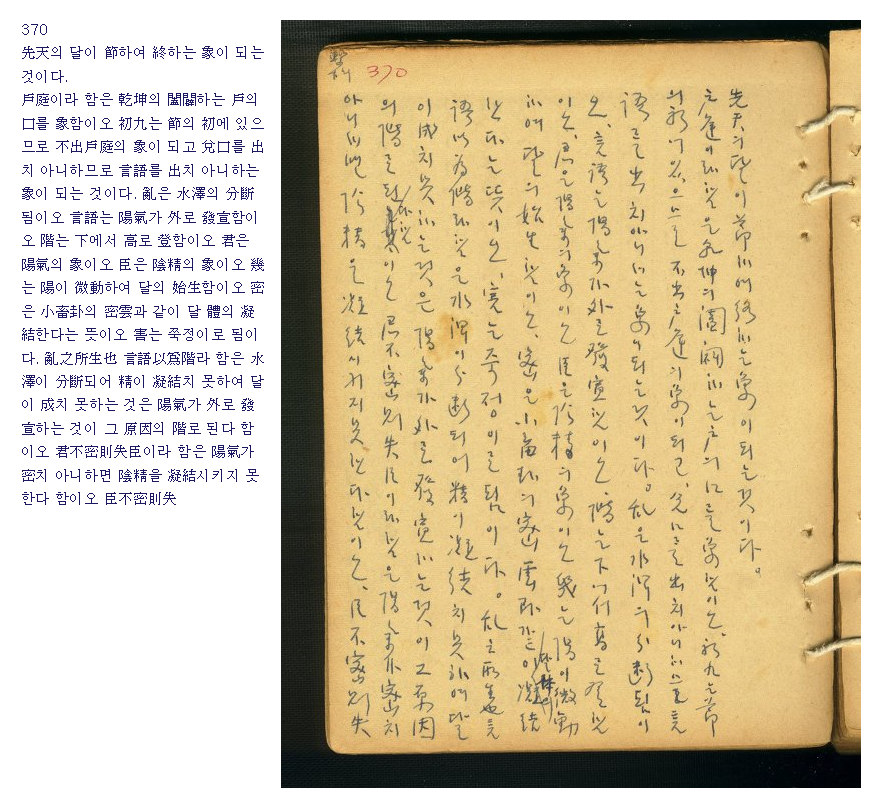 370
先天의 달이 節하여 終하는 象이 되는
것이다.
戶庭이라 함은 乾坤의 闔闢하는 戶의
口를 象함이오 初九는 節의 初에 있으
므로 不出戶庭의 象이 되고 兌口를 出
치 아니하므로 言語를 出치 아니하는
象이 되는 것이다. 亂은 水澤의 分斷
됨이오 言語는 陽氣가 外로 發宣함이
오 階는 下에서 高로 登함이오 君은
陽氣의 象이오 臣은 陰精의 象이오 幾
는 陽이 微動하여 달의 始生함이오 密
은 小畜卦의 密雲과 같이 달 體의 凝
結한다는 뜻이오 害는 쭉정이로 됨이
다. 亂之所生也 言語以爲階라 함은 水
澤이 分斷되어 精이 凝結치 못하여 달
이 成치 못하는 것은 陽氣가 外로 發
宣하는 것이 그 原因의 階로 된다 함
이오 君不密則失臣이라 함은 陽氣가
密치 아니하면 陰精을 凝結시키지 못
한다 함이오 臣不密則失
370
先天의 달이 節하여 終하는 象이 되는 것이다。
戶庭이라 함은 乾坤의 闔闢하는 戶의 口를 象함이오、初九는 節
의 初에 있으므로 不出戶庭의 象이 되고、兌口를 出치 아니하므로 言
語를 出치 아니하는 象이 되는 것이다。亂은 水澤의 分斷됨이
오、言語는 陽氣가 外로 發宣함이오、階는 下에서 高로 登함
이오、君은 陽氣의 象이오 臣은 陰精의 象이오 幾는 陽이 微動
하여 달의 始生함이오、密은 小畜卦의 密雲과 같이 달 體의 凝結
한다는 뜻이오、害는 쭉정이로 됨이다。亂之所生也 言
語以爲階라 함은 水澤이 分斷되어 精이 凝結치 못하여 달
이 成치 못하는 것은 陽氣가 外로 發宣하는 것이 그 原因
의 階로 된다 함이오 君不密則失臣이라 함은 陽氣가 密치
아니하면 陰精을 凝結시키지 못한다 함이오、臣不密則失